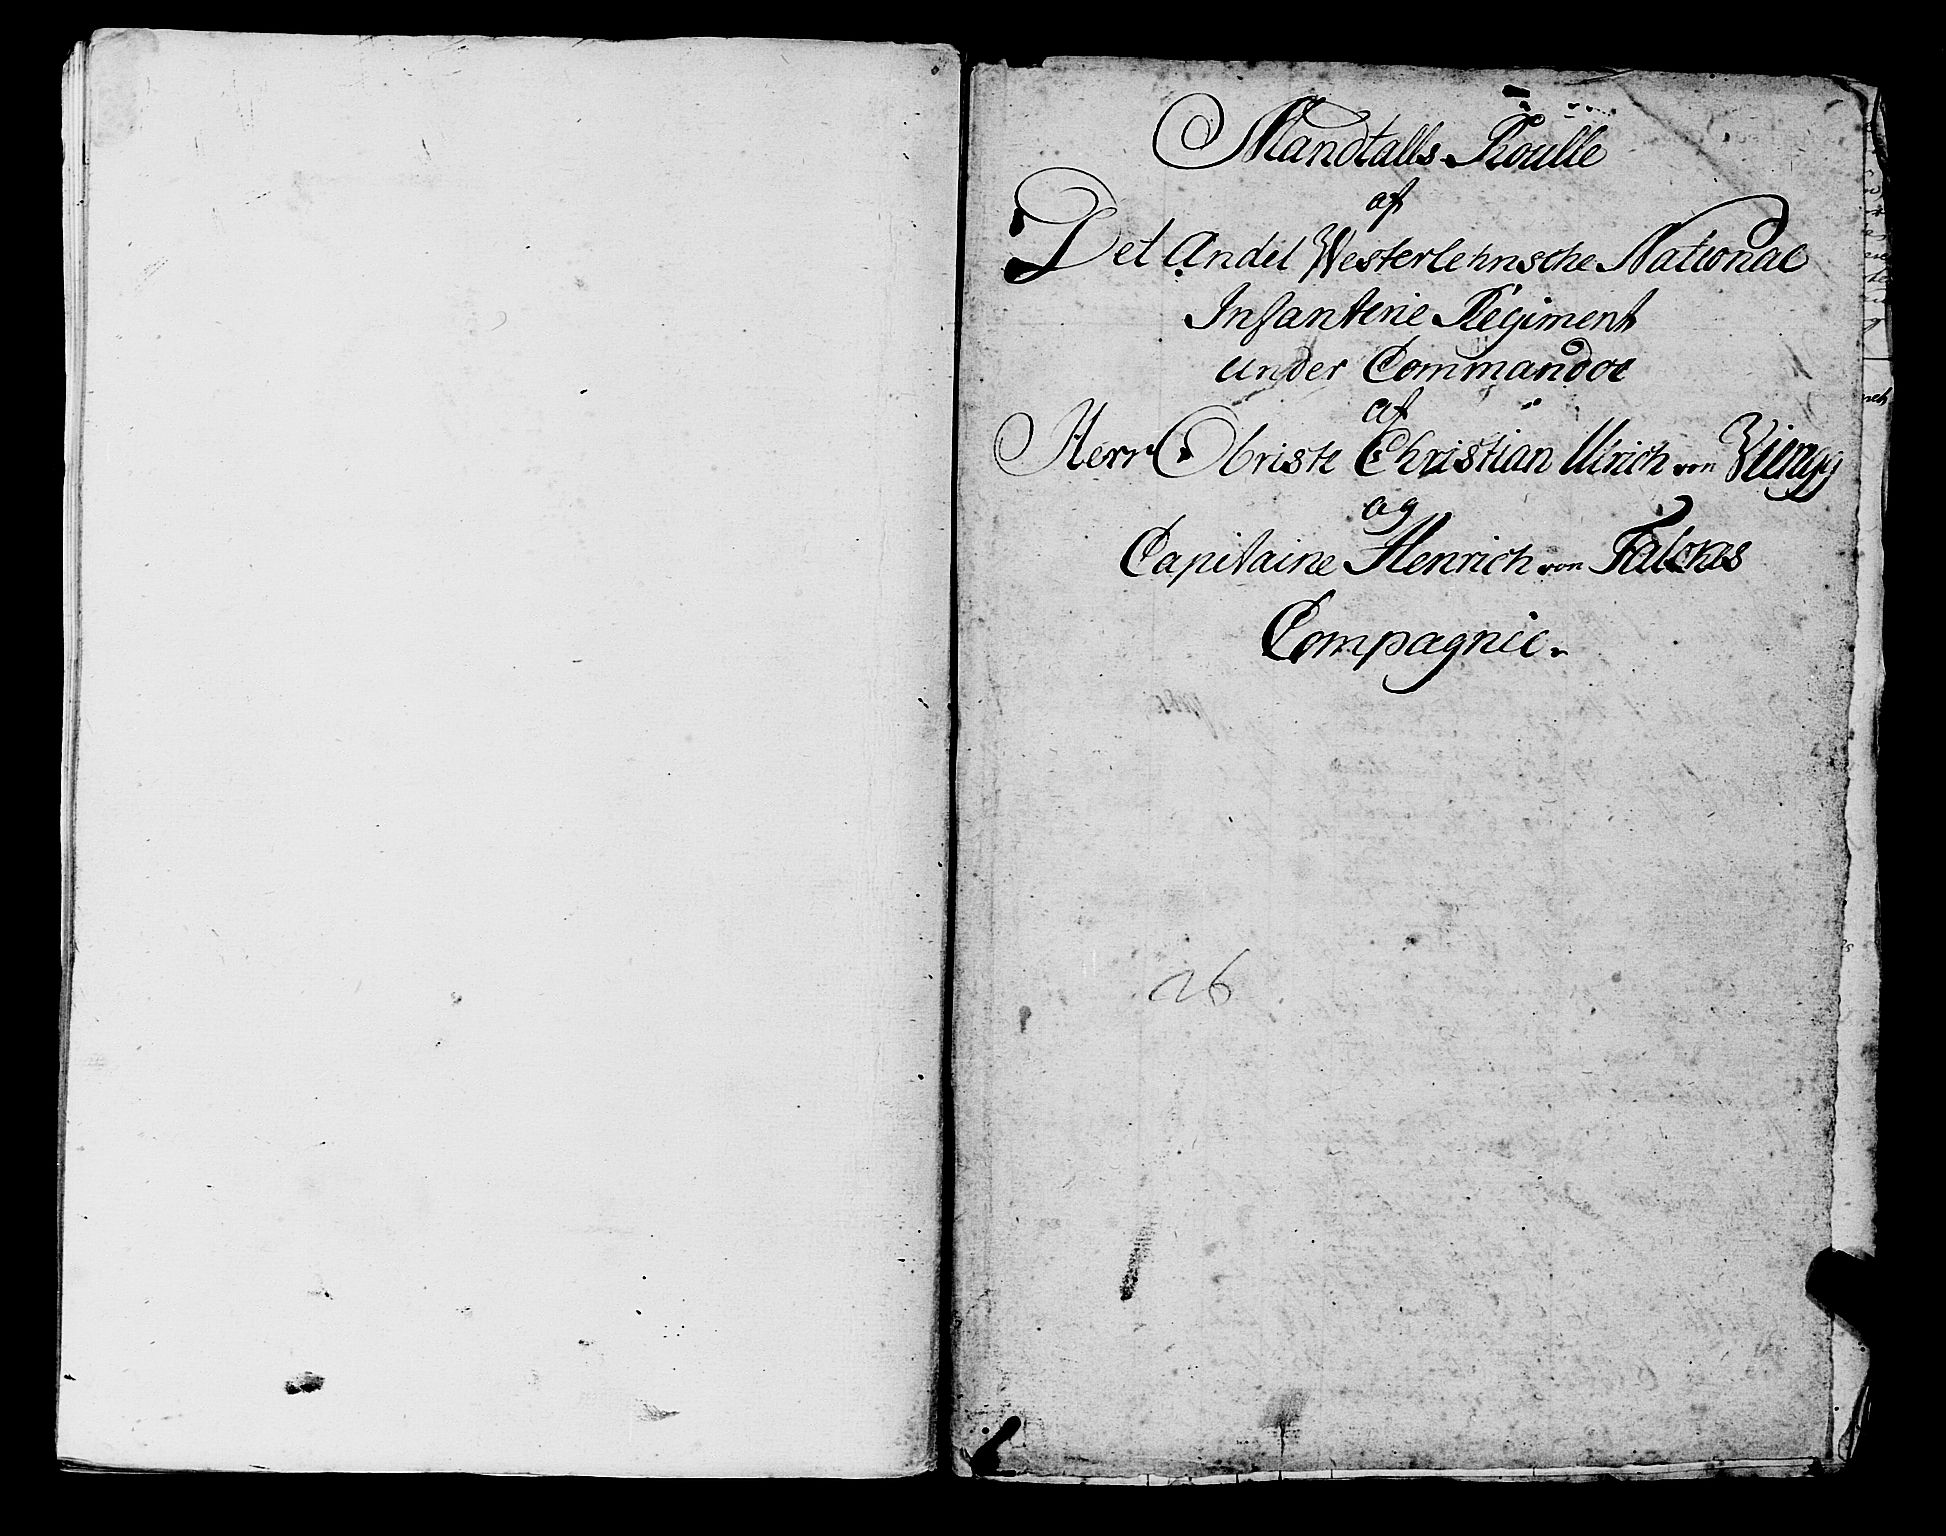 Mandtalls Roulle
af
Det Andet Westerlehnsche National
Infanterie Regiment
under Commandoe
af
Herr Obriste Christian Ulrich von
og
Capitaine Henrich von Falckes
Compagnie.
26